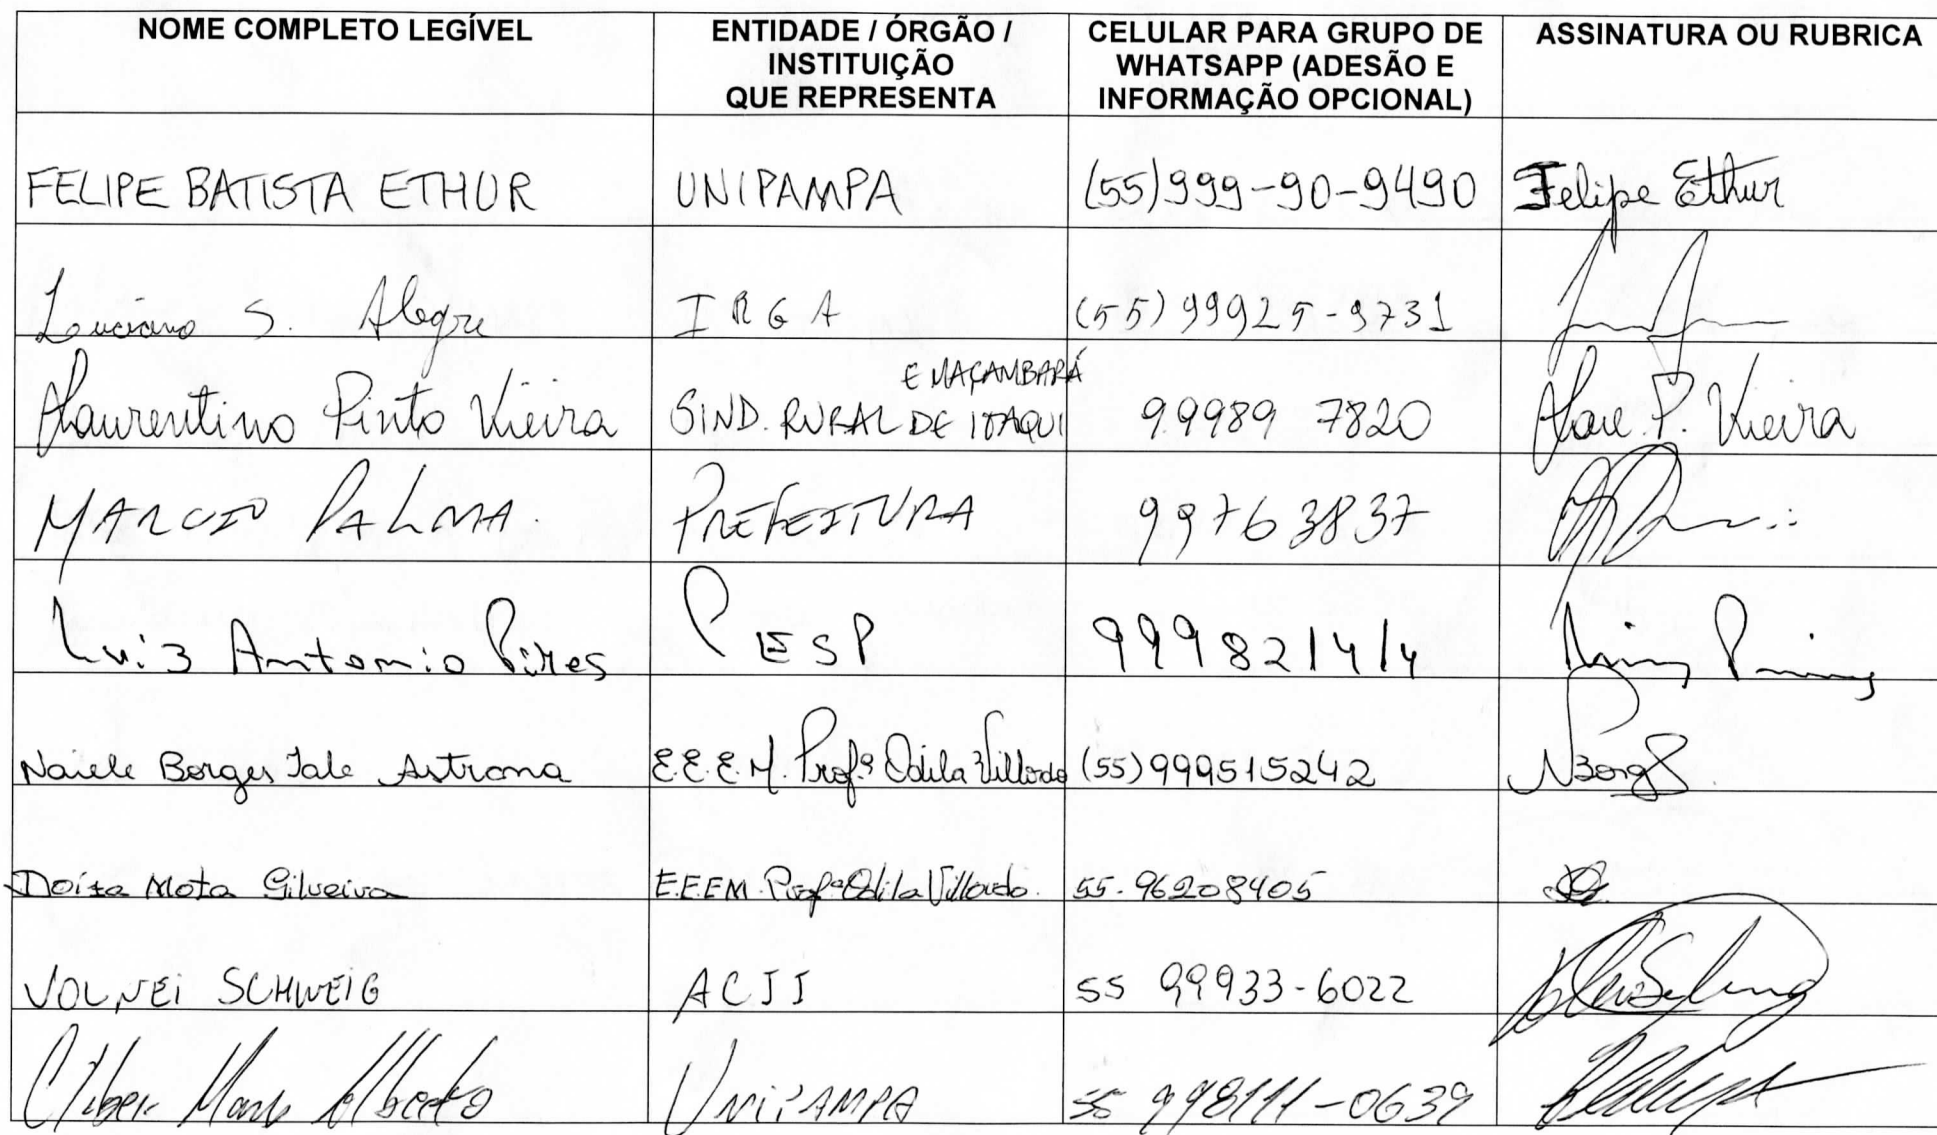 NOME COMPLETO LEGÍVEL
ENTIDADE / ÓRGÃO /
INSTITUIÇÃO
QUE REPRESENTA
CELULAR PARA GRUPO DE
WHATSAPP (ADESÃO E
INFORMAÇÃO OPCIONAL)
ASSINATURA OU RUBRICA
FELIPE BATISTA ETHUR UNIPAMPA (55)999-90-9490 Felipe Ethur
Luciano S. Alegre IRGA (55) 99925-9731
E MAÇAMBARÁ
Laurentino Pinto Vieira SIND. RURAL DE ITAQUI 99989 7820 Laure. P. Vieira
MARCIO PALMA. PREFEITURA 99763837
Luiz Antonio Pires PESP 999821414
Naiele Borges Jale E.E.E.M. Profª Odila Villordo (55)999515242 NBorges
Mota Silveira E.E.E.M. Profª Odila Villordo. 55-96208405
VOLNEI SCHWEIG ACII 55 99933-6022
Cleber Alberto UNIPAMPA 55 998111-0639